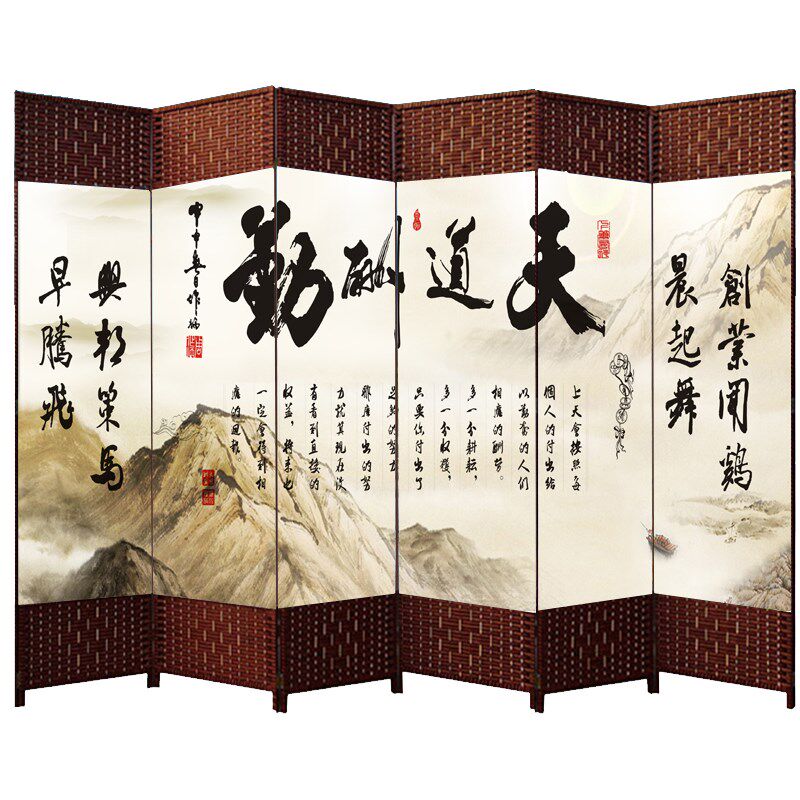 創業聞鷄
晨起舞
天道酬勤
上天會按照每
個人的付出給
以勤奮的人們
相應的酬勞。
多一分耕耘，
多一分收獲，
只要你付出了
足夠的努力
那麼付出的努
力就算現在沒
有看到直接的
收益，將來也
一定會得到相
應的回報
興邦策馬
早騰飛